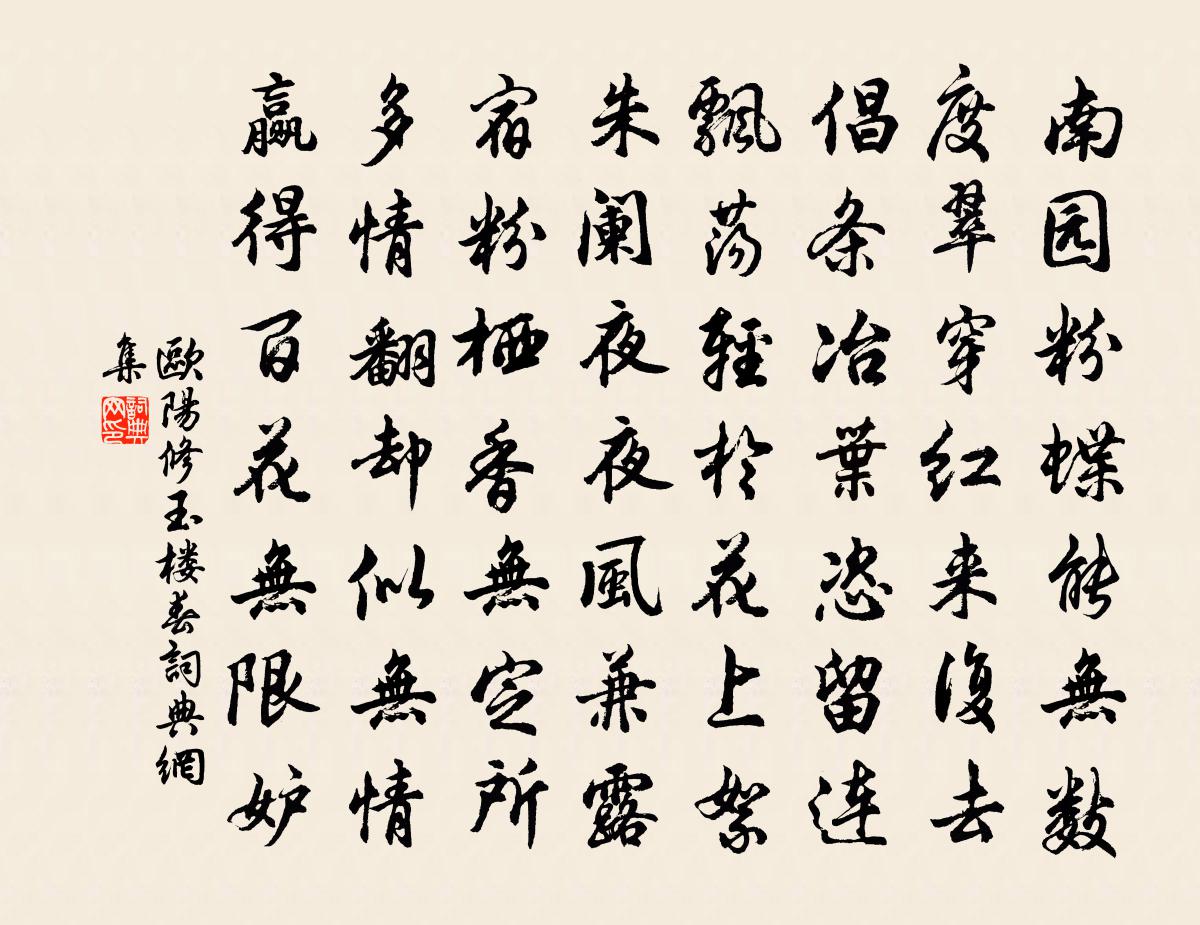 南园粉蝶能無数
度翠穿红来復去
倡条冶葉恣留连
飄荡輕於花上絮
朱阑夜夜風兼露
宿粉栖香無定所
多情翻却似無情
赢得百花無限妒
歐陽修玉楼春詞典網
集
詞典网印